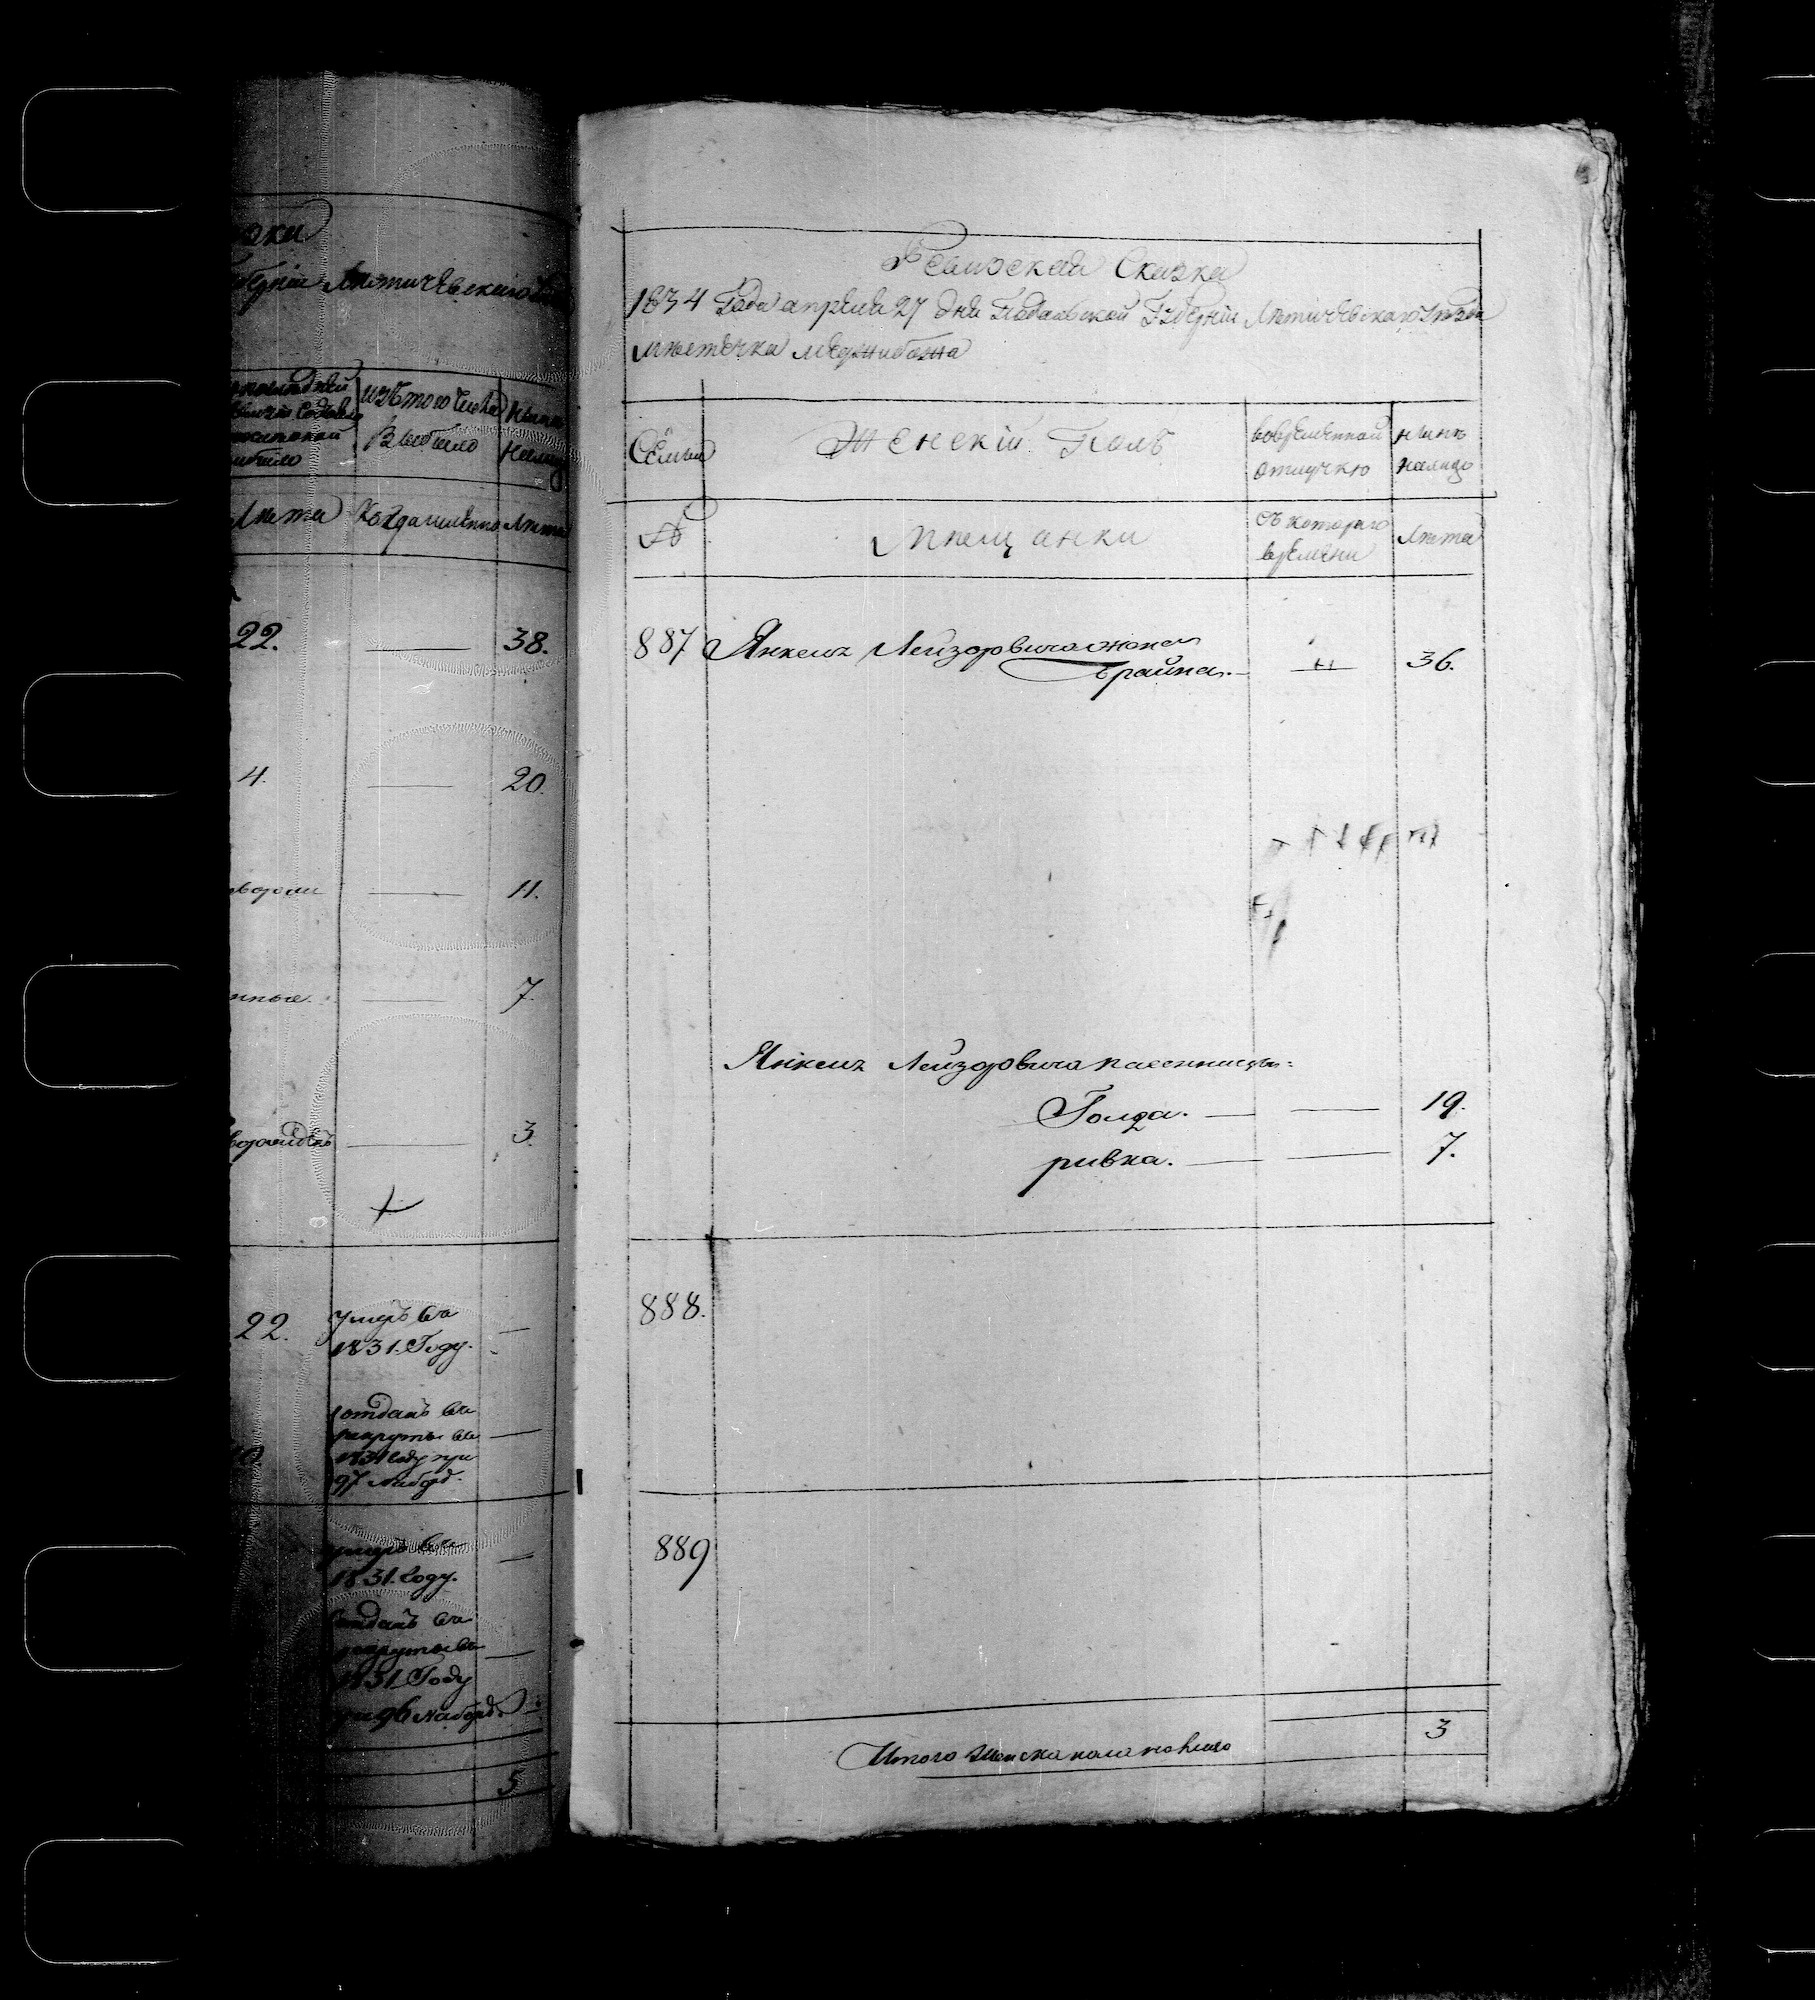 Губерніи Летичевскаго
изъ того числа
Выбыло
нынѣ
Лета
Когда именно
Лета
22. — 38.
4. — 20.
— 11.
— 7.
— 3.
22. умеръ въ —
1831. Году.
отданъ въ
рекруты въ —
1831 Году при
97 набор.
умеръ въ —
1831. Году.
отданъ въ
рекруты въ —
1831 Году
при 96 набор.
5
Ревизская Сказка
1834 Года апреля 27 дня Подольской Губерніи Летичевскаго уезда
местечка меджибожа
Семьи
Женскій Полъ
вовременной
отлучкю
нынѣ
налицо
№
мещанки
съ котораго
времени
Лета
887 Янкеля Лейзоровича жена
Брайна. — " — 36.
Янкеля Лейзоровича племянницы:
Голда. — — 19.
ривка. — — 7.
888.
889
Итого женска пола налицо 3